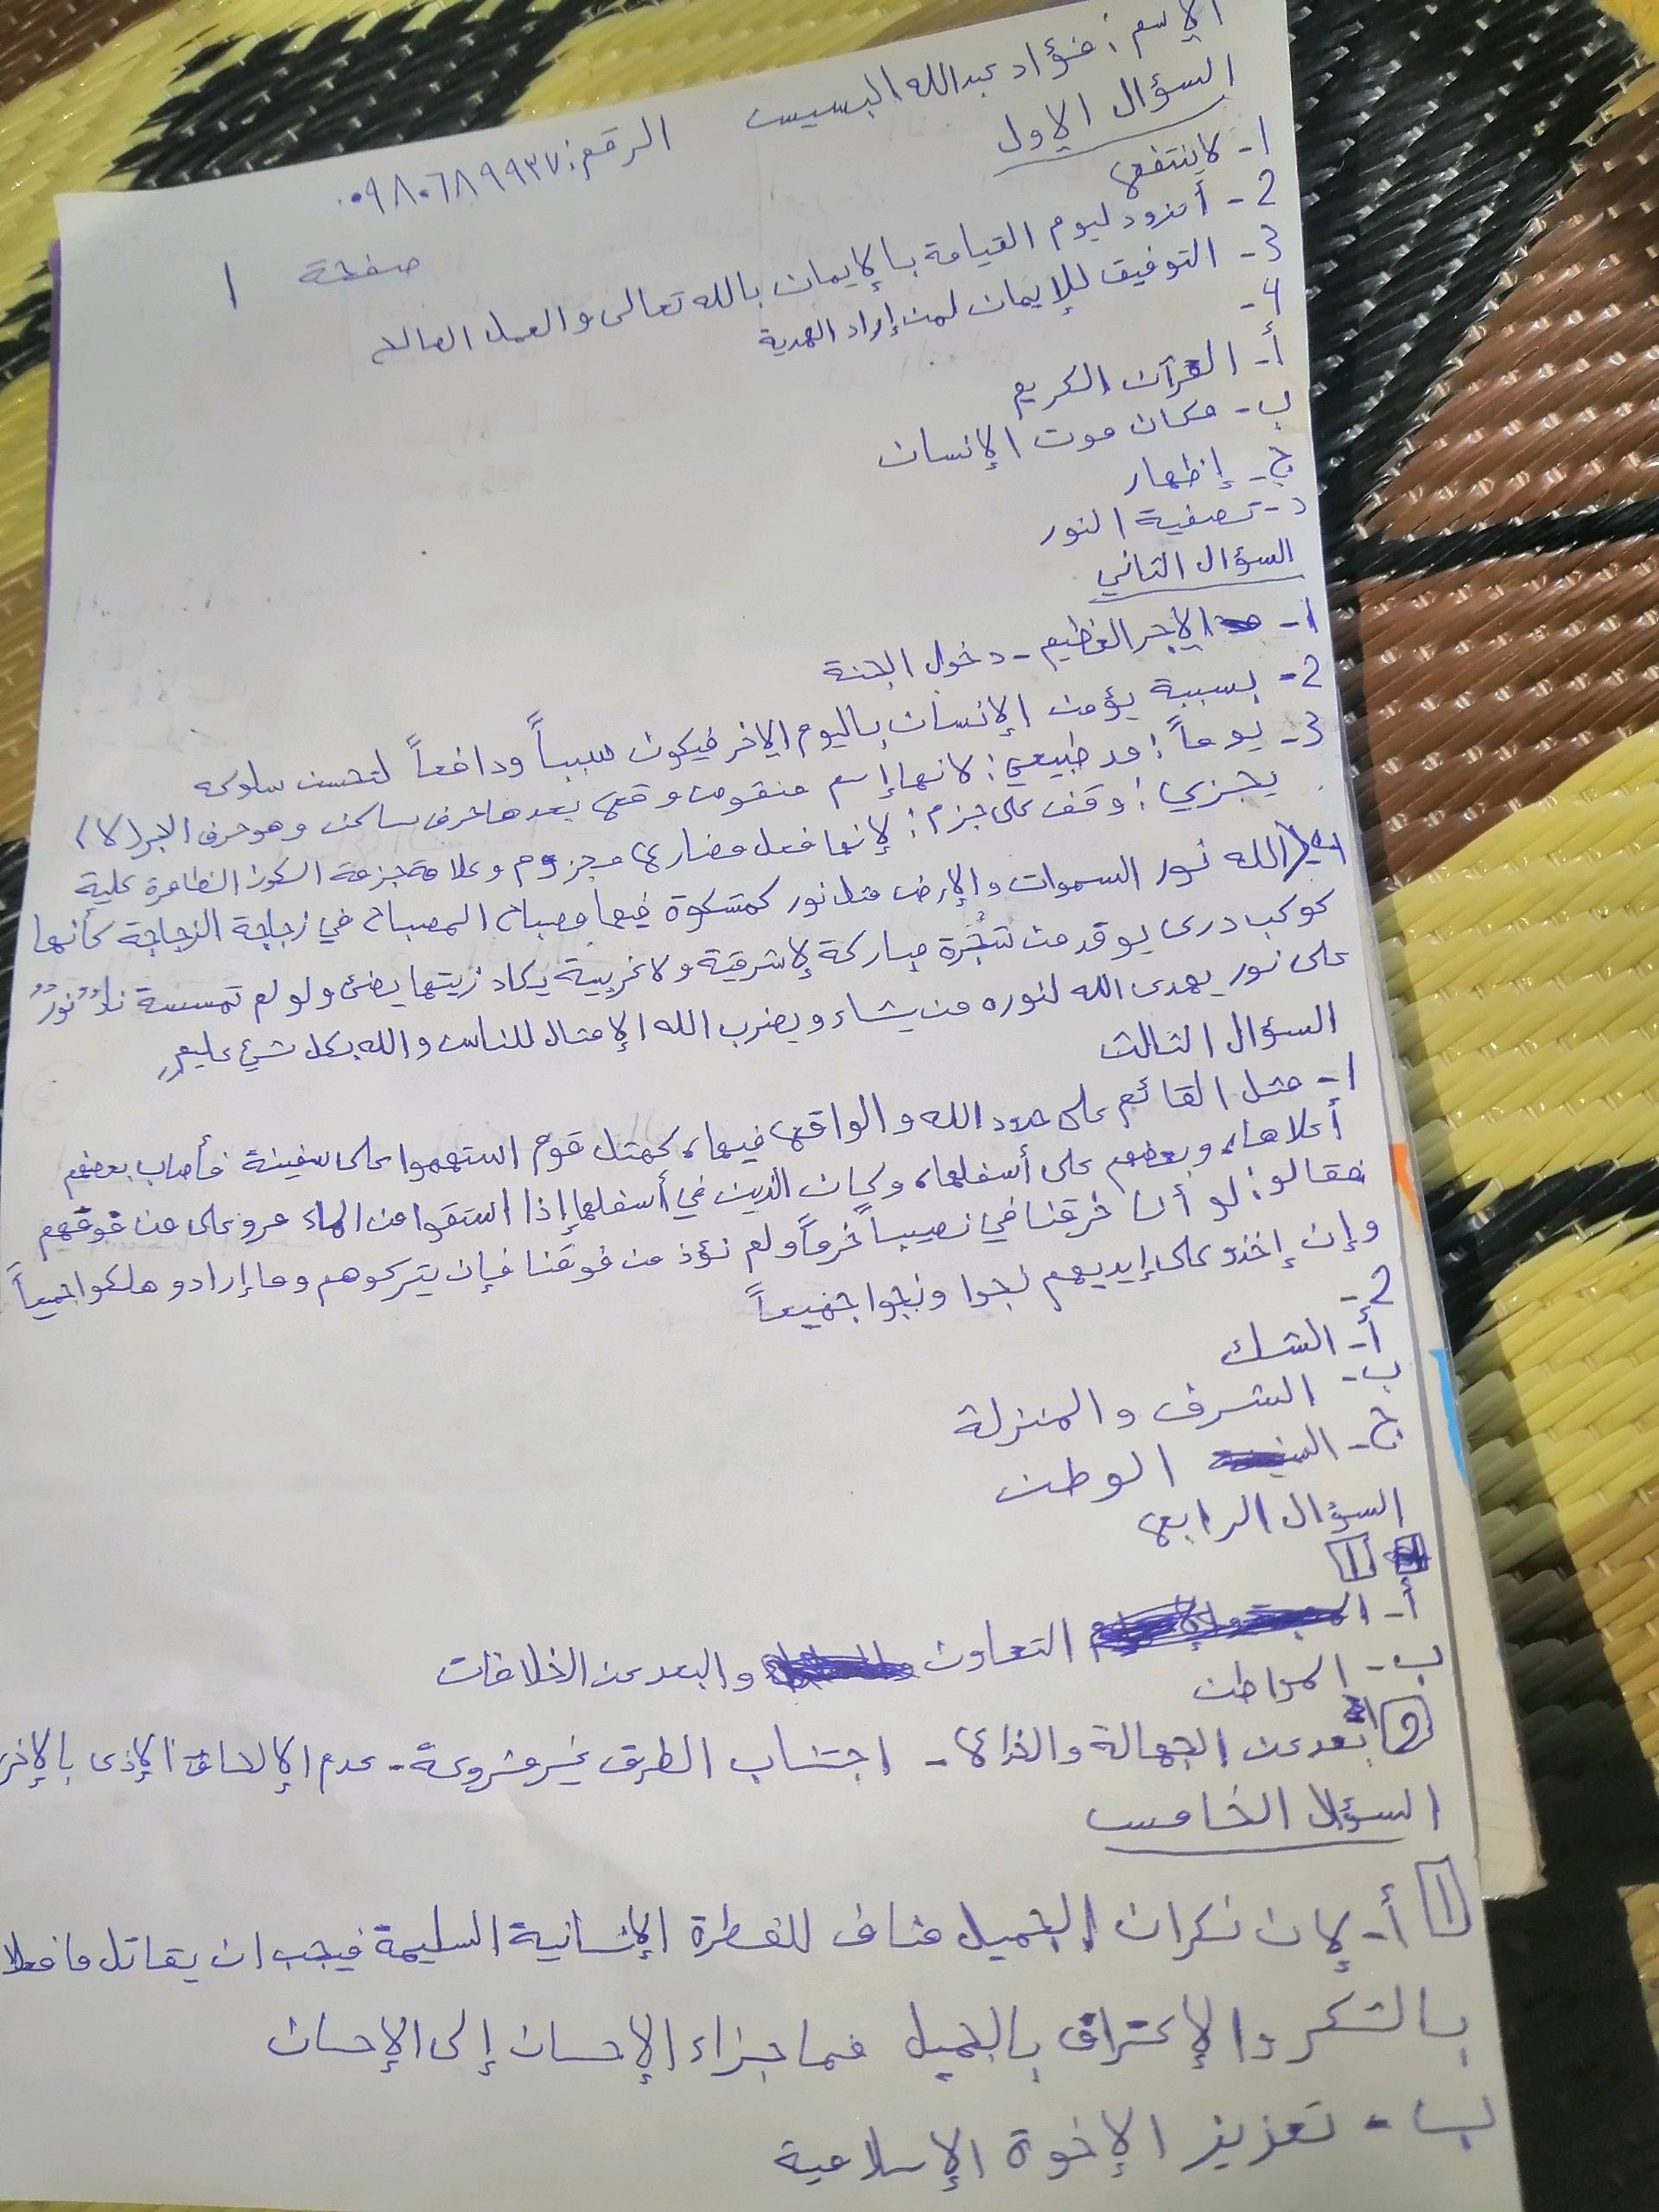 الاسم: فؤاد عبدالله البسيس الرقم: ٠٩٨٠٦٨٩٩٣٧
السؤال الاول
صفحة 1
1- لاينتفع
2- أتزود ليوم القيامة بالإيمان بالله تعالى والعمل الصالح
3- التوفيق للإيمان لمن إراد الهدية
4-
أ- القرآن الكريم
ب- مكان موت الإنسان
ج- إظهار
د- تصفية النور
السؤال الثاني
1- الإجر العظيم - دخول الجنة
2- بسببة يؤمن الإنسان باليوم الإخر فيكون سبباً ودافعاً لتحسن سلوكه
3- يوماً: مد طبيعي: لانها إسم منقوص وقع بعدها حرف ساكن وهو حرف الجر (لا)
يجزي: وقف على جزم: لإنها فعل مضارع مجزوم وعلامة جزمة السكون الظاهرة علية
4- (الله نور السموات والإرض مثل نور كمشكوة فيها مصباح المصباح في زجاجة الزجاجة كأنها
كوكب درى يوقد من شجُرة مباركة لإشرقية ولا غربية يكاد زيتها يضئ ولو لم تمسسة نارٌ نورٌ
على نور يهدى الله لنوره من يشاء ويضرب الله الإمثال للناس والله بكل شيئ عليم
السؤال الثالث
1- مثل القائم على حدود الله والواقع فيها، كمثل قوم استهموا على سفينة فأصاب بعضهم
أعلاها، وبعضهم على أسفلها، وكان الذين في أسفلها إذا استقوا من الماء مرو على من فوقهم
فقالو: لو أنا خرقنا في نصيبباً خرقاً ولم نؤذ من فوقنا فإن يتركوهم وما إرادو هلكوا جميعاً
وإن إخذو على إيديهم نجوا ونجوا جميعاً
2-
أ- الشك
ب- الشرف والمنزلة
ج- الوطن
السؤال الرابع
1
أ- التعاون والبعد عن الخلافات
ب- المواطن
2 ابتعد عن الجهالة والخداع - اجتناب الطرق غير مشروعة - عدم الإلحاق الإذى بالإخر
السؤلا الخامس
1 أ- لإن نكران الجميل مناف للفطرة الإنسانية السليمة فيجب ان يقاتل فافلا
بالشكر والإعتراف بالجميل فما جزاء الإحسان إلى الإحسان
ب- تعزيز الإخوة الإسلامية